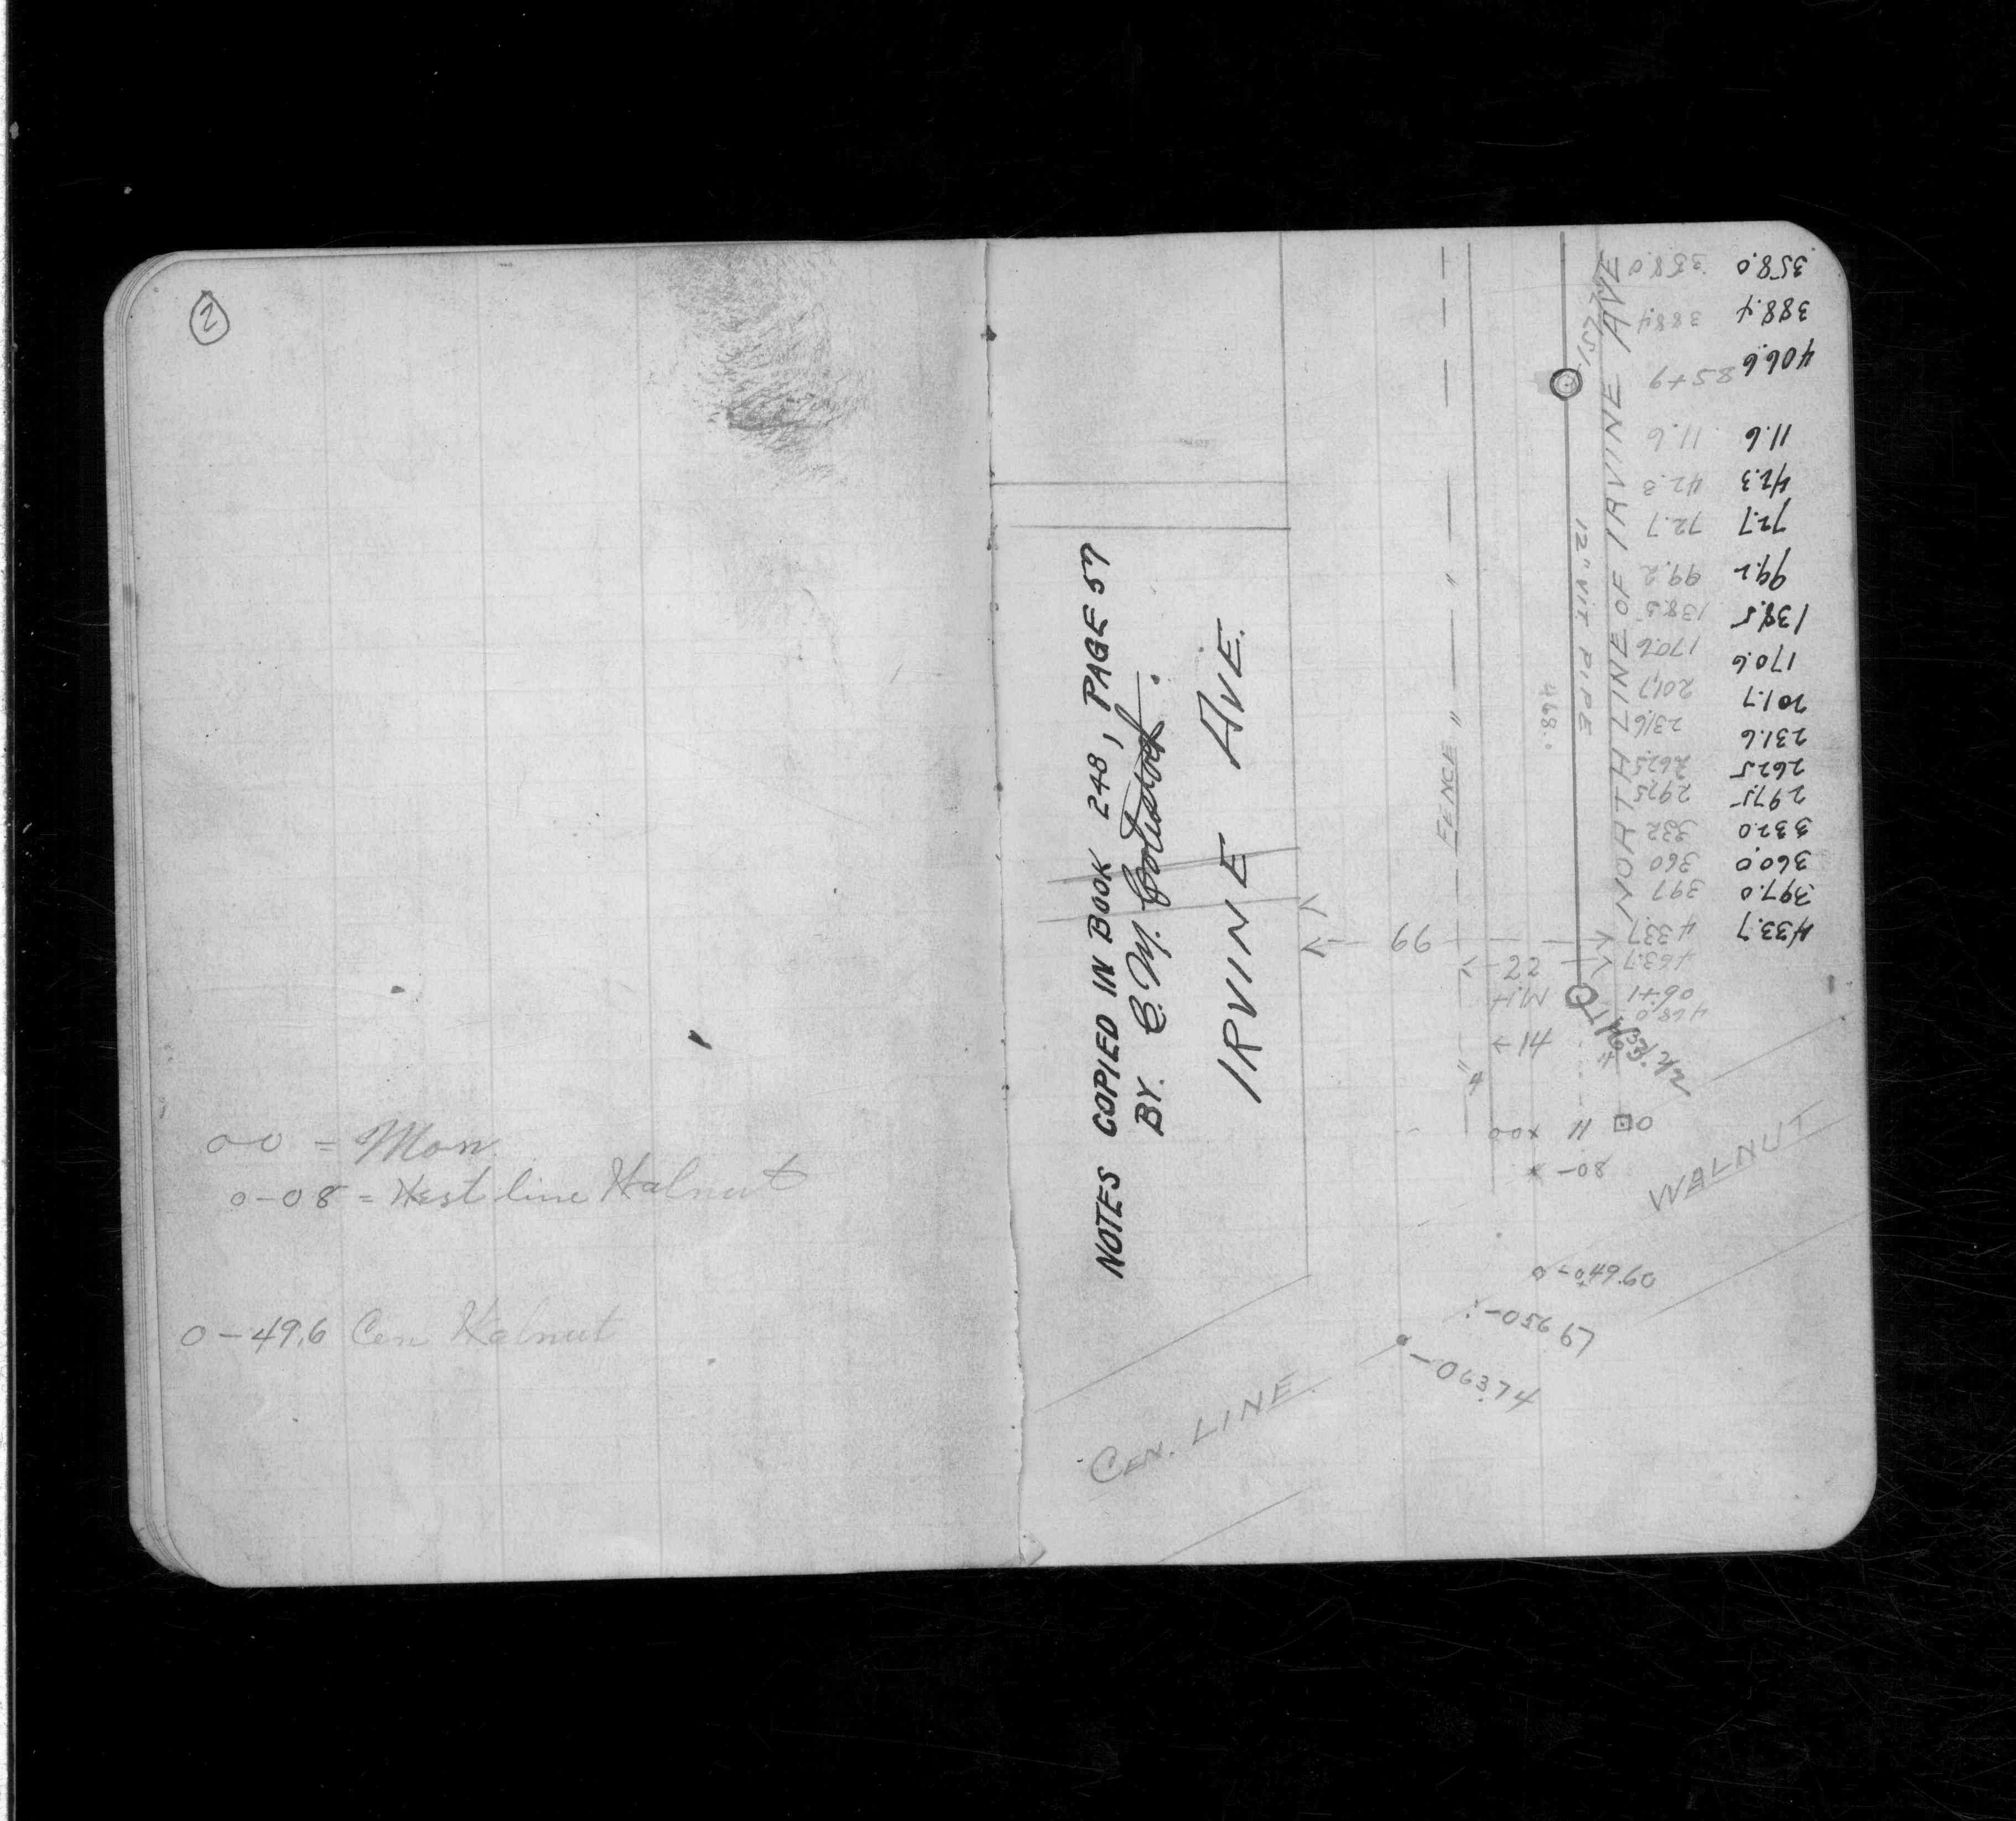 2
00 = Mon.
0-08 = West line Walnut
0-49.6 Cen Walnut
NOTES COPIED IN BOOK 248, PAGE 57
BY. C. M.
IRVINE AVE.
FENCE " "
66
22
M.H
14
4"
00 11 0
-08
12" VIT PIPE
468.0
NORTH LINE OF IRVINE AVE
WALNUT
CEN. LINE
-049.60
-06374
358.0 358.0
388.4 388.4
406.6
85+9
11.6 11.6
42.3 42.3
72.7 72.7
99.2 99.2
138.5 138.5
170.6 170.6
201.7 201.7
231.6 231.6
262.5 262.5
297.5 297.5
332 332.0
360 360.0
397 397.0
433.7 433.7
463.7
06+1
468.0